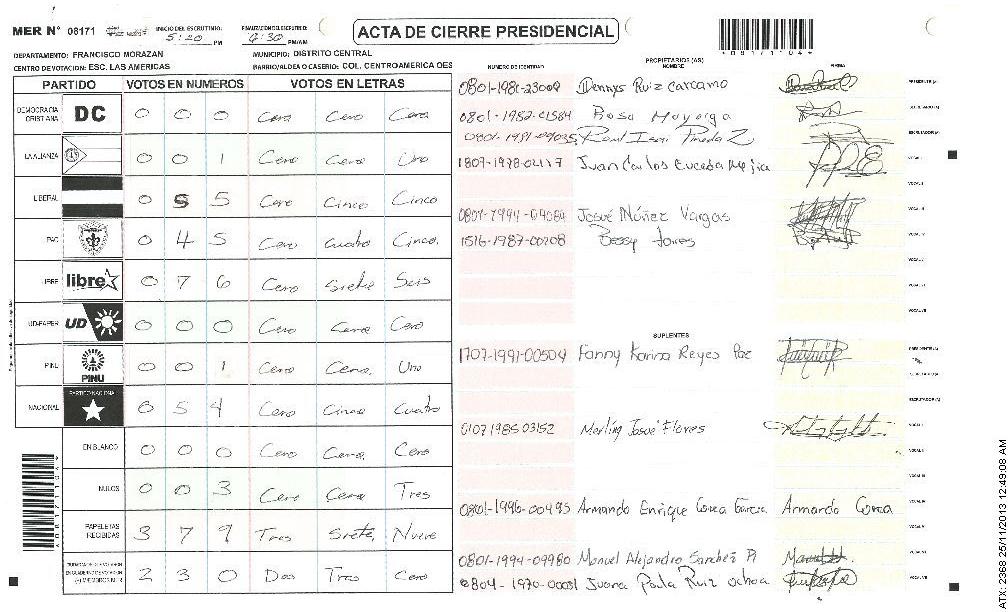 MER N° 08171 INICIO DEL ESCRUTINIO: 5:20 PM FINALIZACION DEL ESCRUTINIO: 9:30 PM/AM ACTA DE CIERRE PRESIDENCIAL
DEPARTAMENTO: FRANCISCO MORAZAN MUNICIPIO: DISTRITO CENTRAL
CENTRO DE VOTACION: ESC. LAS AMERICAS BARRIO/ALDEA O CASERIO: COL. CENTROAMERICA OES
PARTIDO VOTOS EN NUMEROS VOTOS EN LETRAS
DEMOCRACIA CRISTIANA DC 0 0 0 Cero Cero Cero
LA ALIANZA 0 0 1 Cero Cero Uno
LIBERAL 0 5 5 Cero Cinco Cinco
PAC 0 4 5 Cero Cuatro Cinco.
LIBRE libre 0 7 6 Cero Siete Seis
UD-FAPER UD 0 0 0 Cero Cero Cero
PINU PINU 0 0 1 Cero Cero. Uno
NACIONAL PARTIDO NACIONAL 0 5 4 Cero Cinco Cuatro
EN BLANCO 0 0 0 Cero Cero. Cero
NULOS 0 0 3 Cero Cero Tres
PAPELETAS RECIBIDAS 3 7 9 Tres Siete, Nueve
2 3 0 Dos Tres Cero
NUMERO DE IDENTIDAD PROPIETARIOS (AS) NOMBRE FIRMA
0801-1981-23009 Dennys Ruiz Carcamo PRESIDENTE (A)
0801-1982-01584 Rosa Mayorga SECRETARIO (A)
0801-1991-09035 Raul Isai Pineda Z ESCRUTADOR (A)
1807-1978-02117 Juan Carlos Euceda Mejica VOCAL I
VOCAL II
0801-1994-04084 Josué Núñez Vargas VOCAL III
1516-1987-00208 Bessy Torres VOCAL IV
VOCAL V
VOCAL VI
VOCAL VII
SUPLENTES
1707-1991-00504 Fanny Karina Reyes Paz PRESIDENTE (A)
SECRETARIO (A)
ESCRUTADOR (A)
0107 1985 03152 Marlin Josué Flores VOCAL I
VOCAL II
VOCAL III
0801-1996-00495 Armando Enrique Corea Garcia Armando Corea VOCAL IV
VOCAL V
0801-1994-09980 Manuel Alejandro Sanchez P. VOCAL VI
0804-1970-00031 Juana Paula Ruiz Ochoa VOCAL VII
ATX: 2368 25/11/2013 12:49:08 AM